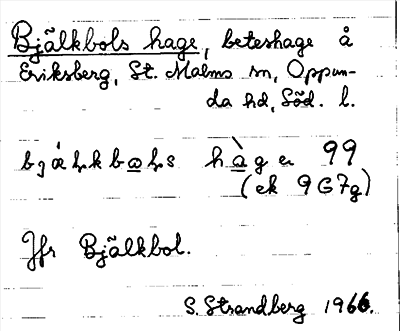 Bjälkbols hage, beteshage å
Eriksberg, St. Malms sn, Oppun-
da hd, Söd. l.
hage 99
(ek 9G7g)
Jfr Bjälkbol.
S. Strandberg 1966.